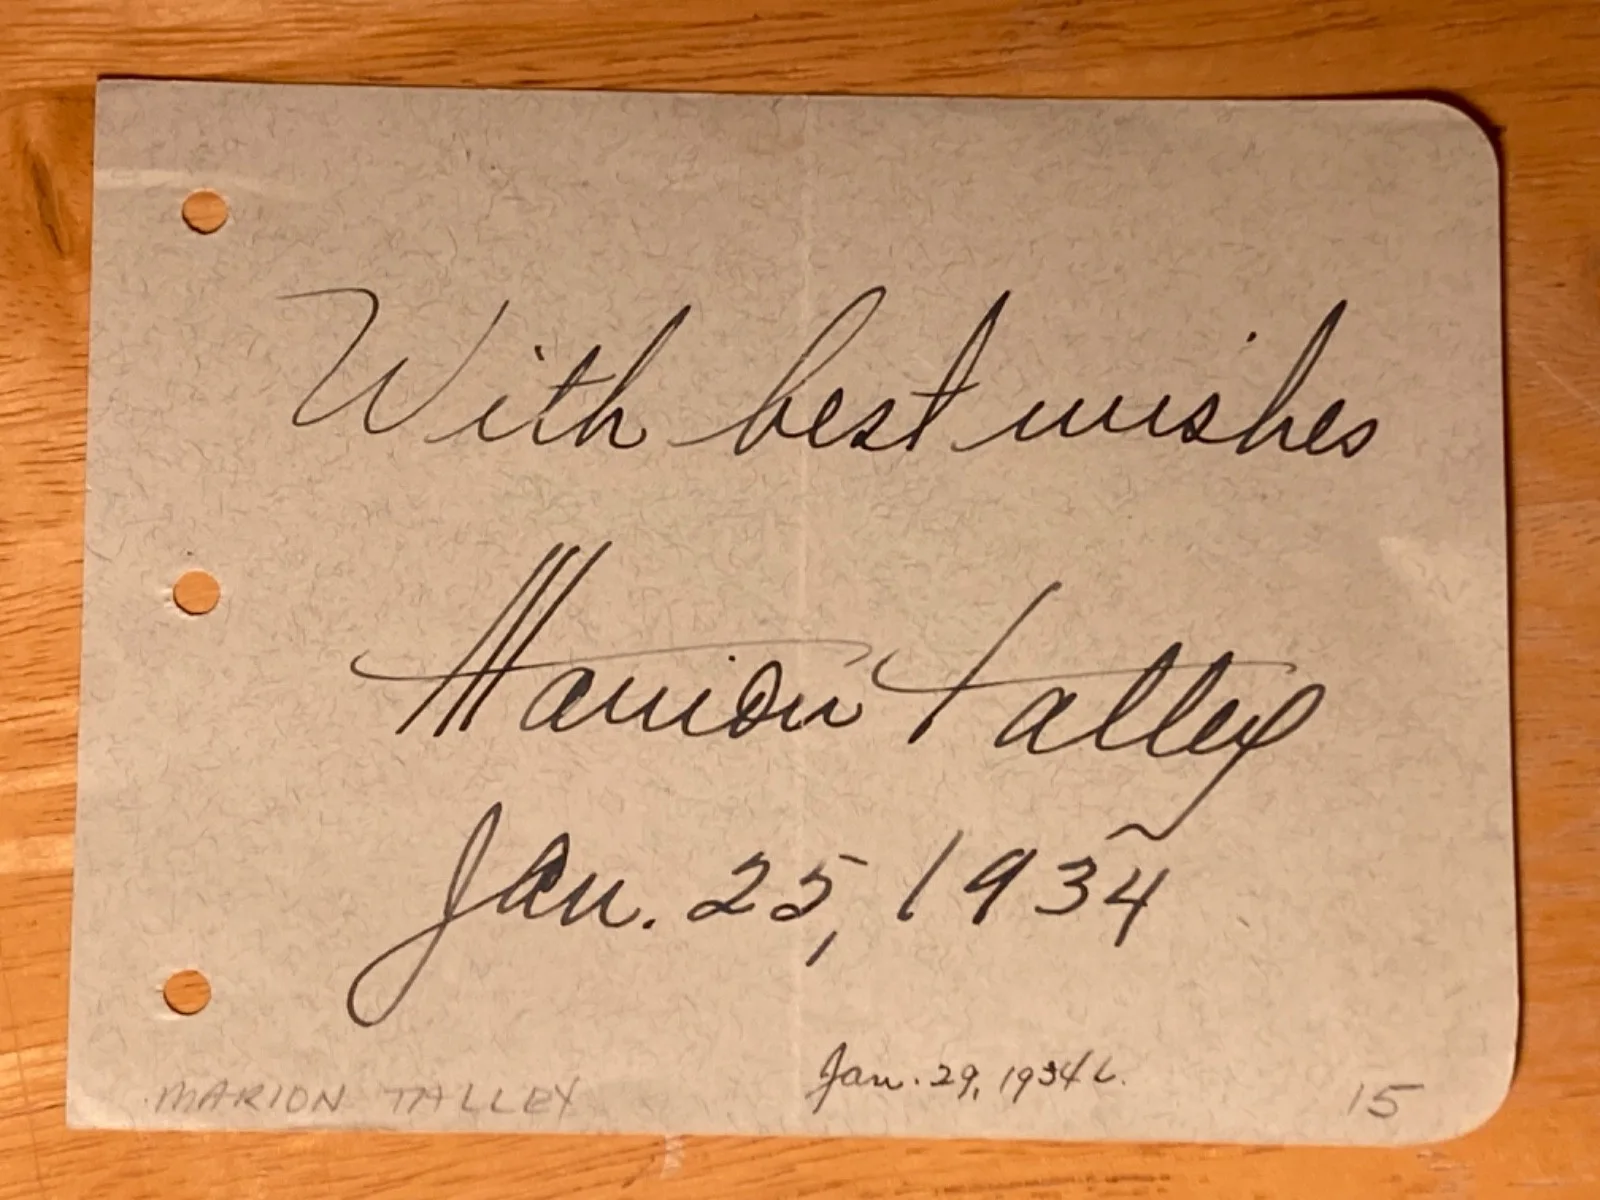 With best wishes
Marion Talley
Jan. 25, 1934
Jan. 29, 1934 L.
MARION TALLEY
15